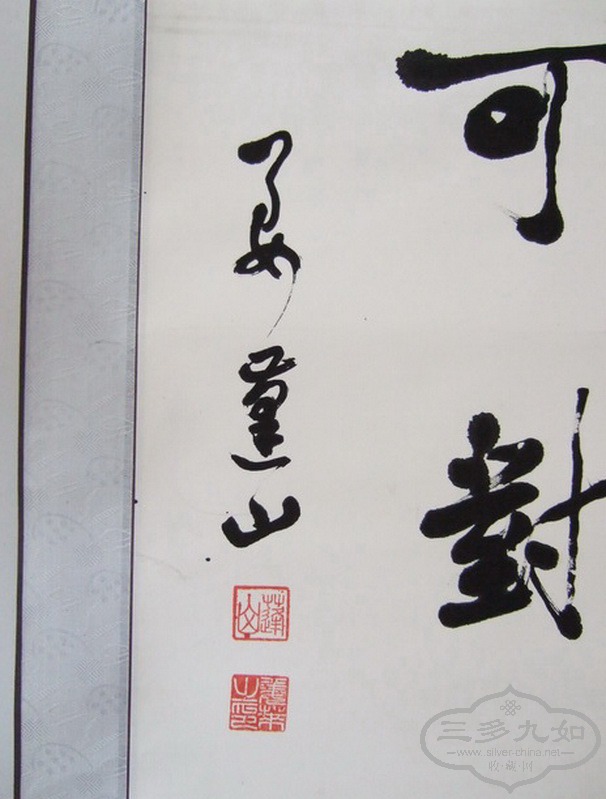 可對
蓬山
蓬山
之印
三多九如
www.silver-china.net
收·藏·网